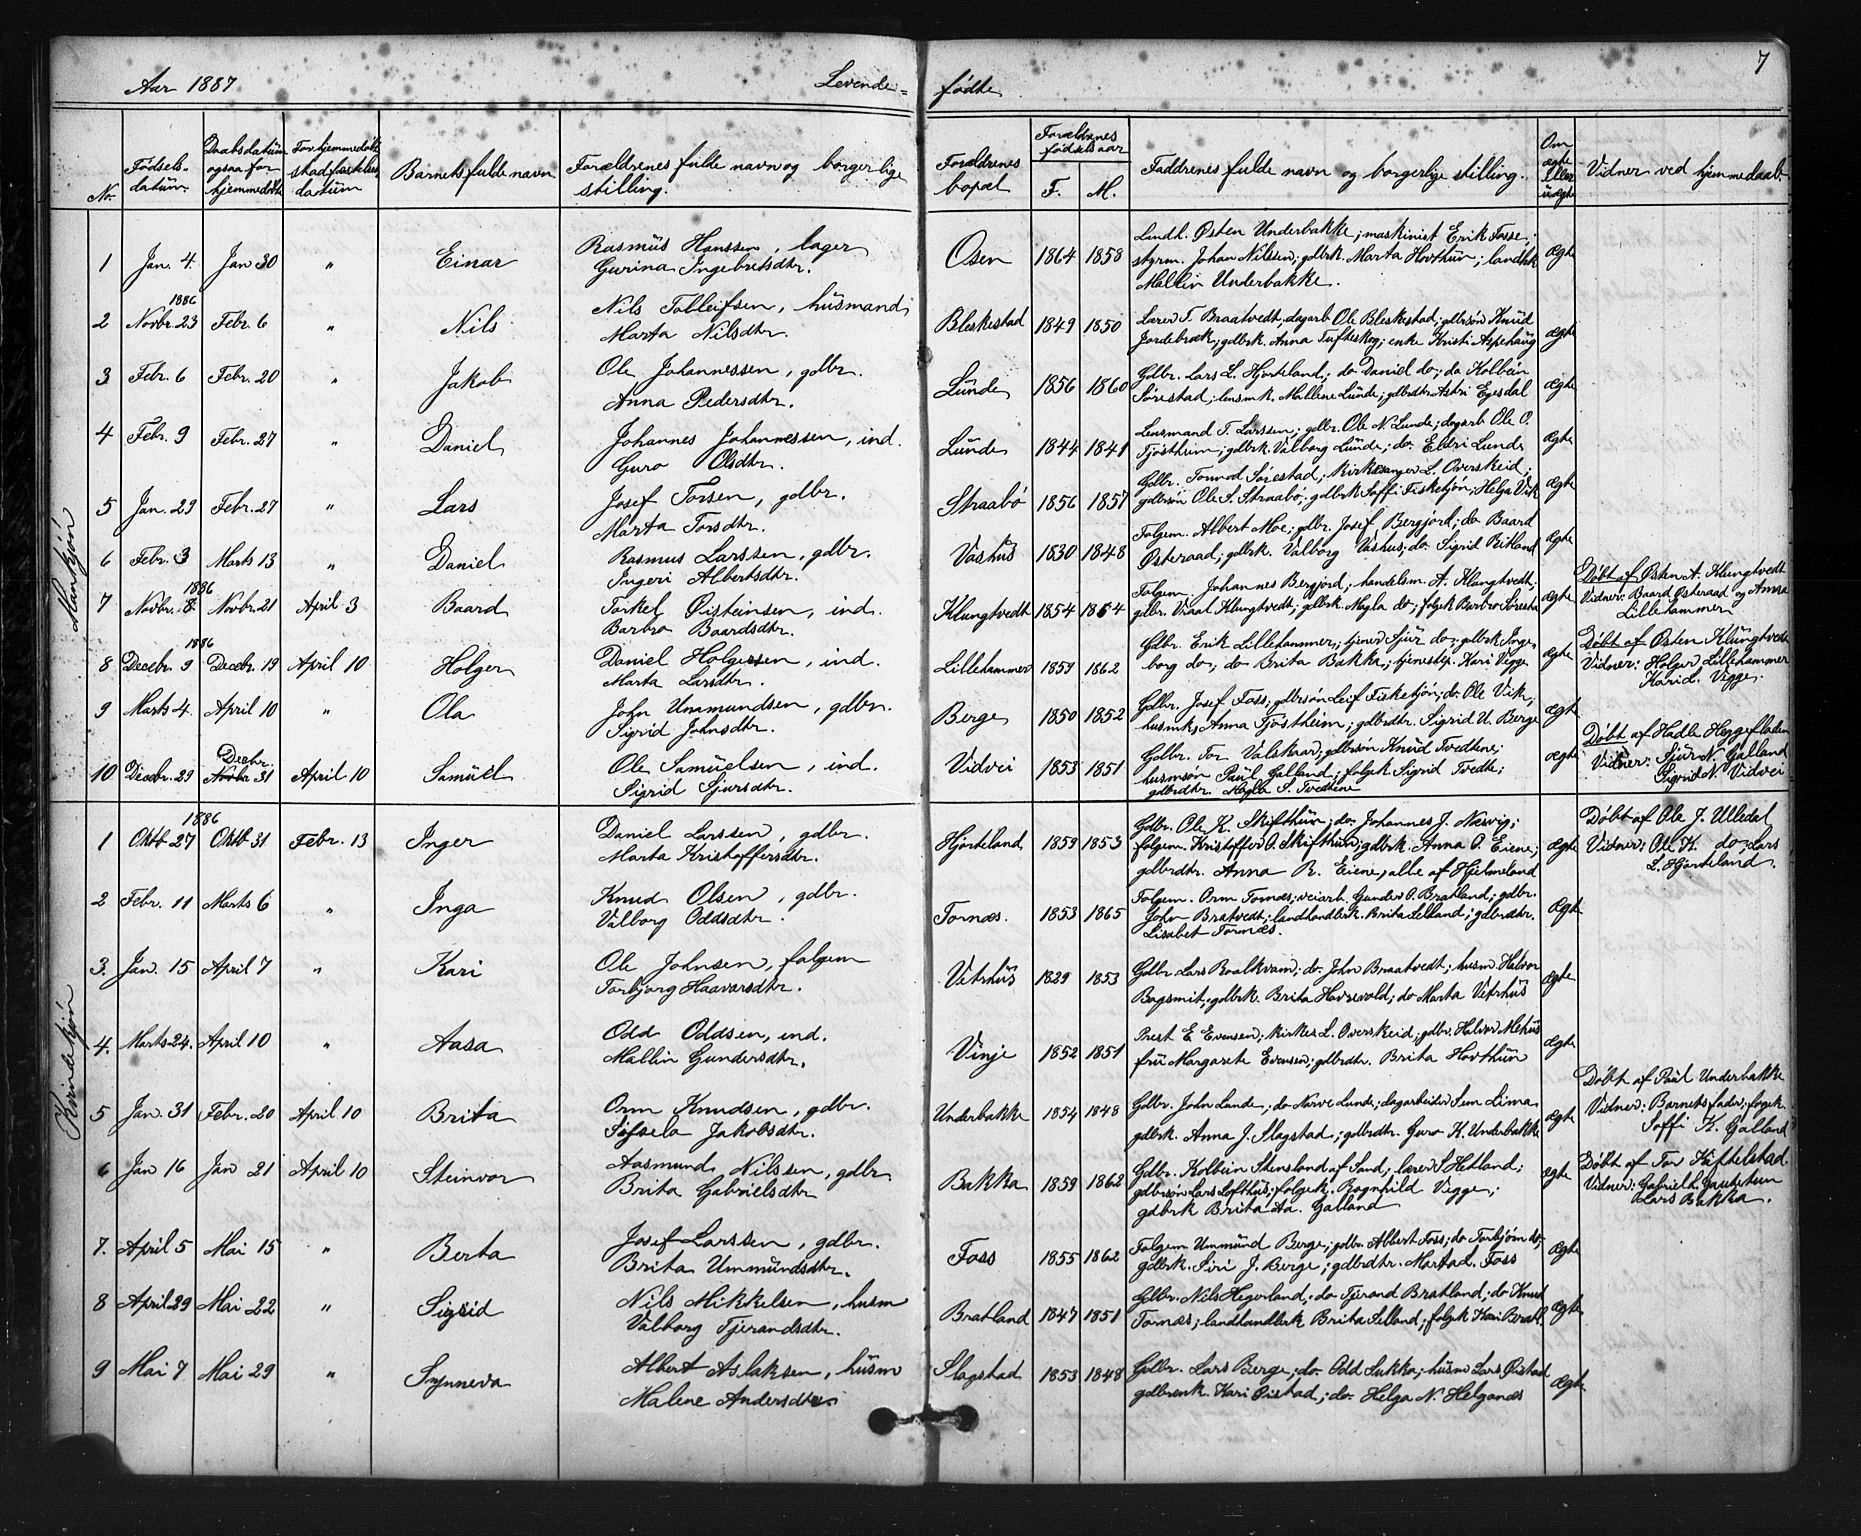 Aar 1887 Levende= født 7
No. Fødsels-datum. Daabsdatum ogsaa for hjemmedøbte For hjemmedøbte stadfæstelses datum Barnets fulde navn Forældrenes fulde navn og borgerlige stilling. Forældrenes bopæl Forældrenes fødselsaar F. M. Faddrenes fulde navn og borgerlige stilling. Om ægte eller uægte Vidner ved hjemmedaab.
Mankjøn
1 Jan. 4. Jan 30 " Einar Rasmus Hanssen, lager Osen 1864 1858 Landh. Østen Underbakke; maskinist Erik Fosse; ægte
Gurina Ingebretsdtr. styrm. Johan Nilssen; gdbrk. Marta Hovthun; landhk
Mallin Underbakke.
1886
2 Novbr. 23 Febr. 6 " Nils Nils Tolleifsen, husmand Bleskestad 1849 1850 Lærer T. Braatvedt, dagarb Ole Bleskestad; gdbrsøn Knud ægte
Marta Nilsdtr. Jordebræk; gdbrk. Anna Tufteskog; enke Kristi Aspehaug
3 Febr. 6 Febr. 20 " Jakob Ole Johannessen, gdbr. Lunde 1856 1860 Gdbr. Lars L. Hjorteland; do Daniel do; do Kolbein ægte
Anna Pedersdtr. Sørestad; lensmk. Mallene Lunde; gdbrdtr Astri Eyesdal
4 Febr. 9 Febr. 27 " Daniel Johannes Johannessen, ind. Lunde 1844 1841 Lensmand T. Larssen; gdbr. Ole N Lunde; dagarb Ole O. ægte
Guro Olsdtr. Tjøstheim; gdbrk. Valborg Lunde; do. Eldri Lunde
5 Jan. 29 Febr. 27 " Lars Josef Torsen, gdbr. Straabø 1856 1857 Gdbr. Tormod Sørestad; kirkesanger L. Overskeid; ægte
Marta Torsdtr. gdbrsøn Ole S. Straabø; gdbrk Soffi Fisketjøn; Helga Vik
6 Febr. 3 Marts 13 " Daniel Rasmus Larssen, gdbr. Vashus 1830 1848 Folgem. Albert Moe; gdbr. Josef Bergjord; do Baard ægte
Ingeri Albertsdtr. Østeraad; gdbrk. Valborg Vashus; do. Sigrid Reitland
1886
7 Novbr. 8 Novbr. 21 April 3 Baard Torkel Øisteinsen, ind. Klungtvedt 1854 1864 Folgem. Johannes Bergjord; handelsm. A. Klungtvedt; ægte Døbt af Østen A. Klungtvedt
Barbro Baardsdtr. gdbr. Vraal Klungtvedt; gdbrk. Magla do; folgk Barbro Søresta Vidner: Baard Østeraad og Anna
Lillehammer
1886
8 Decebr. 9 Decebr. 19 April 10 Holger Daniel Holgersen, ind. Lillehammer 1859 1862 Gdbr. Erik Lillehammer; tjener Sjur do; gdbrk Inge- ægte Døbt af Østen Klungtvedt
Marta Larsdtr. borg do; do Brita Bakka; tjenestep. Kari Vigge Vidner: Holger Lillehammer
Kari L. Vigge.
9 Marts 4. April 10 " Ola John Ummundsen, gdbr. Berge 1850 1852 Gdbr. Josef Foss; gdbrsøn Leif Fisketjøn; do. Ole Vik; ægte
Sigrid Johnsdtr. husmk. Anna Tjøstheim; gdbrdtr. Sigrid U. Berge
10 Decebr. 29 Decbr. 31 April 10 Samuel Ole Samuelsen, ind. Vidvei 1853 1851 Gdbr. Tor Valskaar; gdbrsøn Knud Tvedtene; ægte Døbt af Hadle Heggefladen
Sigrid Sjursdtr. husmsøn Paul Galland; folgk. Sigrid Tvedte; Vidner: Sjur N. Galland
gdbrdtr. Magla S. Tvedtene Sigrid N. Vidvei
Kvindekjøn
1886
1 Oktb 27 Oktb 31 Febr. 13 Inger Daniel Larssen, gdbr. Hjorteland 1859 1853 Gdbr. Ole K. Skifthun; do. Johannes J. Næsvig; ægte Døbt af Ole J. Ulledal
Marta Kristoffersdtr. folgem. Kristoffer O. Skifthun; gdbrk. Anna O. Eiene; Vidner: Ole K. do; Lars
gdbrdtr. Anna R. Eiene, alle af Hjelmeland L. Hjorteland.
2 Febr. 11 Marts 6 " Inga Knud Olsen, gdbr. Tornæs. 1853 1865 Folgem. Orm Tornæs; veiarb. Gunder O. Bratland; gdbr. ægte
Valborg Oddsdtr. John Bratvedt; landhandlerk. Brita Selland; gdbrdtr.
Lisabet Tornæs.
3. Jan. 15 April 7 " Kari Ole Johnsen, folgem Vetrhus 1829 1853 Gdbr. Lars Roalkvam; do. John Braatvedt; husm. Halvor ægte
Torbjorg Haavarsdtr. Bagsmit; gdbrk. Brita Havrevold; do Marta Vetrhus
4. Marts 24. April 10 " Aasa Odd Oddsen, ind. Vinje 1852 1851 Prest E Evensen; kirkes L. Overskeid; gdbr. Halvor Mehus ægte
Mallin Gundersdtr. fru Margarete Evensen; gdbrdtr. Brita Hovthun
5 Jan. 31 Febr. 20 April 10 Brita Orm Knudsen, gdbr. Underbakke 1854 1848 Gdbr. John Lunde; do Narve Lunde; dagarbeider Sem Lima ægte Døbt af Paul Underbakke
Sissela Jakobsdtr. gdbrk. Anna J. Slagstad; gdbrdtr. Guro K. Underbakke Vidner: Barnets fader; folgek.
Soffi K. Galland
6 Jan 16 Jan 21 April 10 Steinvor Aasmund Nilssen, gdbr Bakka 1859 1862 Gdbr. Kolbein Stensland af Sand; lærer S Hetland; ægte Døbt af Tor Kaftelstad
Brita Gabrielsdtr gdbrsøn Lars Lofthus; folgek. Ragnhild Vigge; Vidner: Gabriel
gdbrk Brita Aa. Galland Lars Bakka.
7. April 5 Mai 15 " Berta Josef Larssen, gdbr. Foss 1855 1862 Folgem Ummund Berge; gdbr. Albert Foss; do Torbjørn do; ægte
Brita Ummundsdtr. gdbrk. Siri J. Berge; gdbrdtr. Marta d. Foss
8 April 29 Mai 22 " Sigrid Nils Mikkelsen, husm Bratland 1847 1851 Gdbr. Nils Hegerland; do Tjerand Bratland; do Knud ægte
Valborg Tjerandsdtr. Tornæs; landhandlerk Brita Selland; folgk Kari Bratl.
9 Mai 7 Mai 29 " Synneva Albert Aslaksen, husm Slagstad 1853 1848 Gdbr. Lars Berge; do. Odd Sukka; husm Lars Øistad ægte.
Malene Andersdtr. gdbrenk. Kari Øistad; do. Helga N. Helganæs